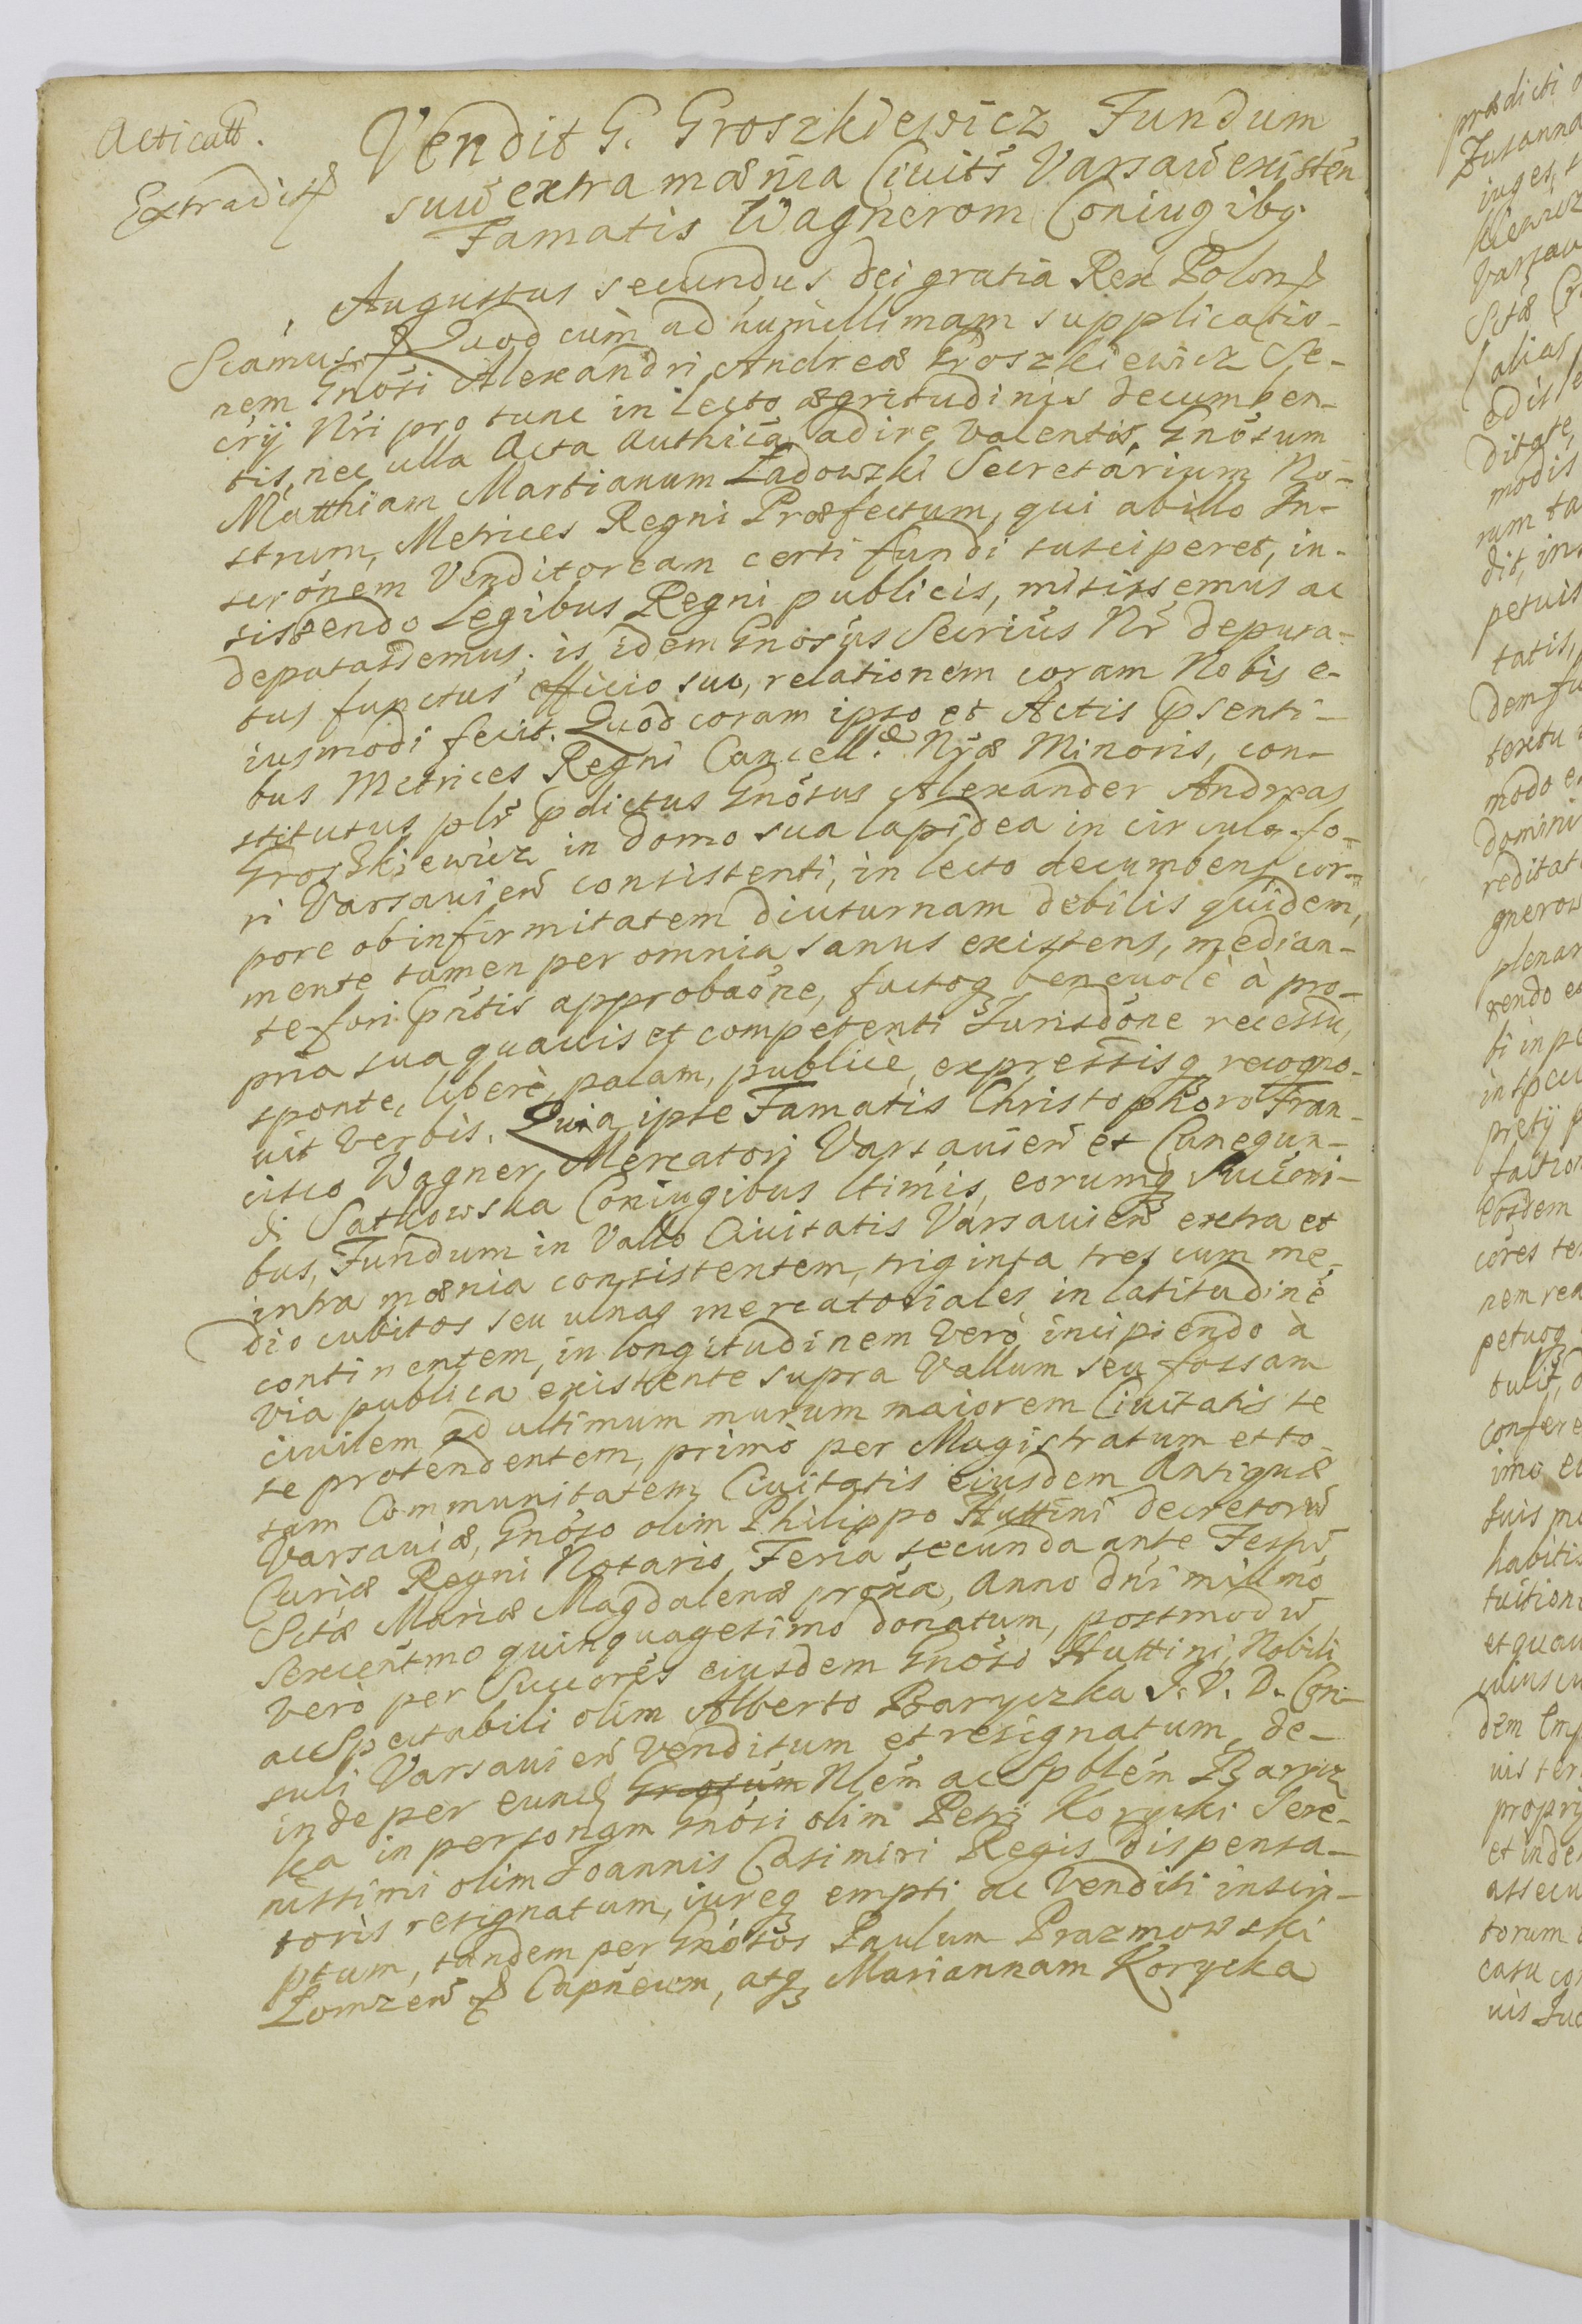 Acticatt.
Extradit
Vendit G. Groszkiewicz Fundum
suũ extra mœnia Ciuitš Varsauexisteñ
Famatis Wagnerom Coniugibq
Augustus secundus dei gratia Rex Polon
Scimus Quod cùm ad humillimam supplicatio-
nem Gnõsi Alexandri Andreæ Groszkiewicz Se-
crỹ Nři pro tunc in lecto ægritudinis decumben-
tis, nec ulla Acta Authĩca adire valentis, Gnõsum
Matthiam Martianum Ładowski Secretarium No-
strum, Metrices Regni Præfectum, qui ab illo In-
scrõnem Venditoream certi fundi susciperet, in-
sistendo Legibus Regni publicis, misissemus ac
deputassemus; is idem Gnõsus Secrius Nř deputa-
tus functus officio suo, relationem coram Nobis e-
iusmodi fecit. Quod coram ipso et Actis p̃senti-
bus Metrices Regni Cancell.æ Nřæ Minoris, con-
stitutus plř p̃dictus Gnõsus Alexander Andreas
Groszkiewicz in domo sua lapidea in circulo fo-
ri Varsavieñ consistenti, in lecto decumbens cor-
pore ob infirmitatem diuturnam debilis quidem,
mente tamen per omnia sanus existens, median-
te fori p̃ñtis approbaõne, factoq3 beneuolè à pro-
pria sua quauis et competenti Jurisdõne recessu,
sponte, liberè, palam, publicè, expressisq3 recogno-
uit verbis. Quia ipse Famatis Christophoro Fran-
cisco Wagner, Mercatori Varsauieñ et Cunegun-
di Satkowska Coniugibus ltimis, eorumq3 Succõri-
bus, Fundum in Vallo Ciuitatis Varsauieñ extra et
intra mœnia consistentem, triginta tres cum me-
dio cubitos seu ulnas mercatoriales in latitudine
continentem, in longitudinem verò incipiendo à
via publica existente supra Vallum seu fossam
ciuilem ad ultimum murum maiorem Ciuitatis se
se protendentem, primò per Magistratum et to-
tam Communitatem Ciuitatis eiusdem Antiquæ
Varsauiæ, Gnõso olim Philippo Huttini decretorũ
Curiæ Regni Notario, Feria secunda ante Festũ
Sctæ Mariæ Magdalenæ proxa, Anno dñi millmo
sexcentmo quinquagesimo donatum, postmodũ
verò per Succores eiusdem Gnõso Huttini, Nobili
ac Spectabili olim Alberto Baryczka J. V. D. Con-
suli Varsauieñ venditum et resignatum, de-
inde per eund Gnosum Nlẽm ac Spblẽm Barycz-
ka in personam Gnõsi olim Petri Korycki Sere-
nissimi olim Joannis Casimiri Regis dispensa-
toris resignatum, iureq3 empti ac Venditi inscri-
ptum, tandem per Gnõsos Paulum Prazmowski
Łomzeñ Capneum, atq3 Mariannam Korycka
prædicti
Zusanna
iuges,
kiewicz
Varsau
Sctæ
alias
edit
ditate,
modis
rum ta
dit, ins
petuis
tatis,
dem fu
textu
modo e
domini
reditat
gnerow
plenar
bi in pe
faction
Eosdem
cores te
nem rea
petuoq3
tulit,
confere
imo et
suis
habitis
tuition
et quau
cuius cu
dem
uis ter
et inde
assecu
torum
casu co
uis Juc